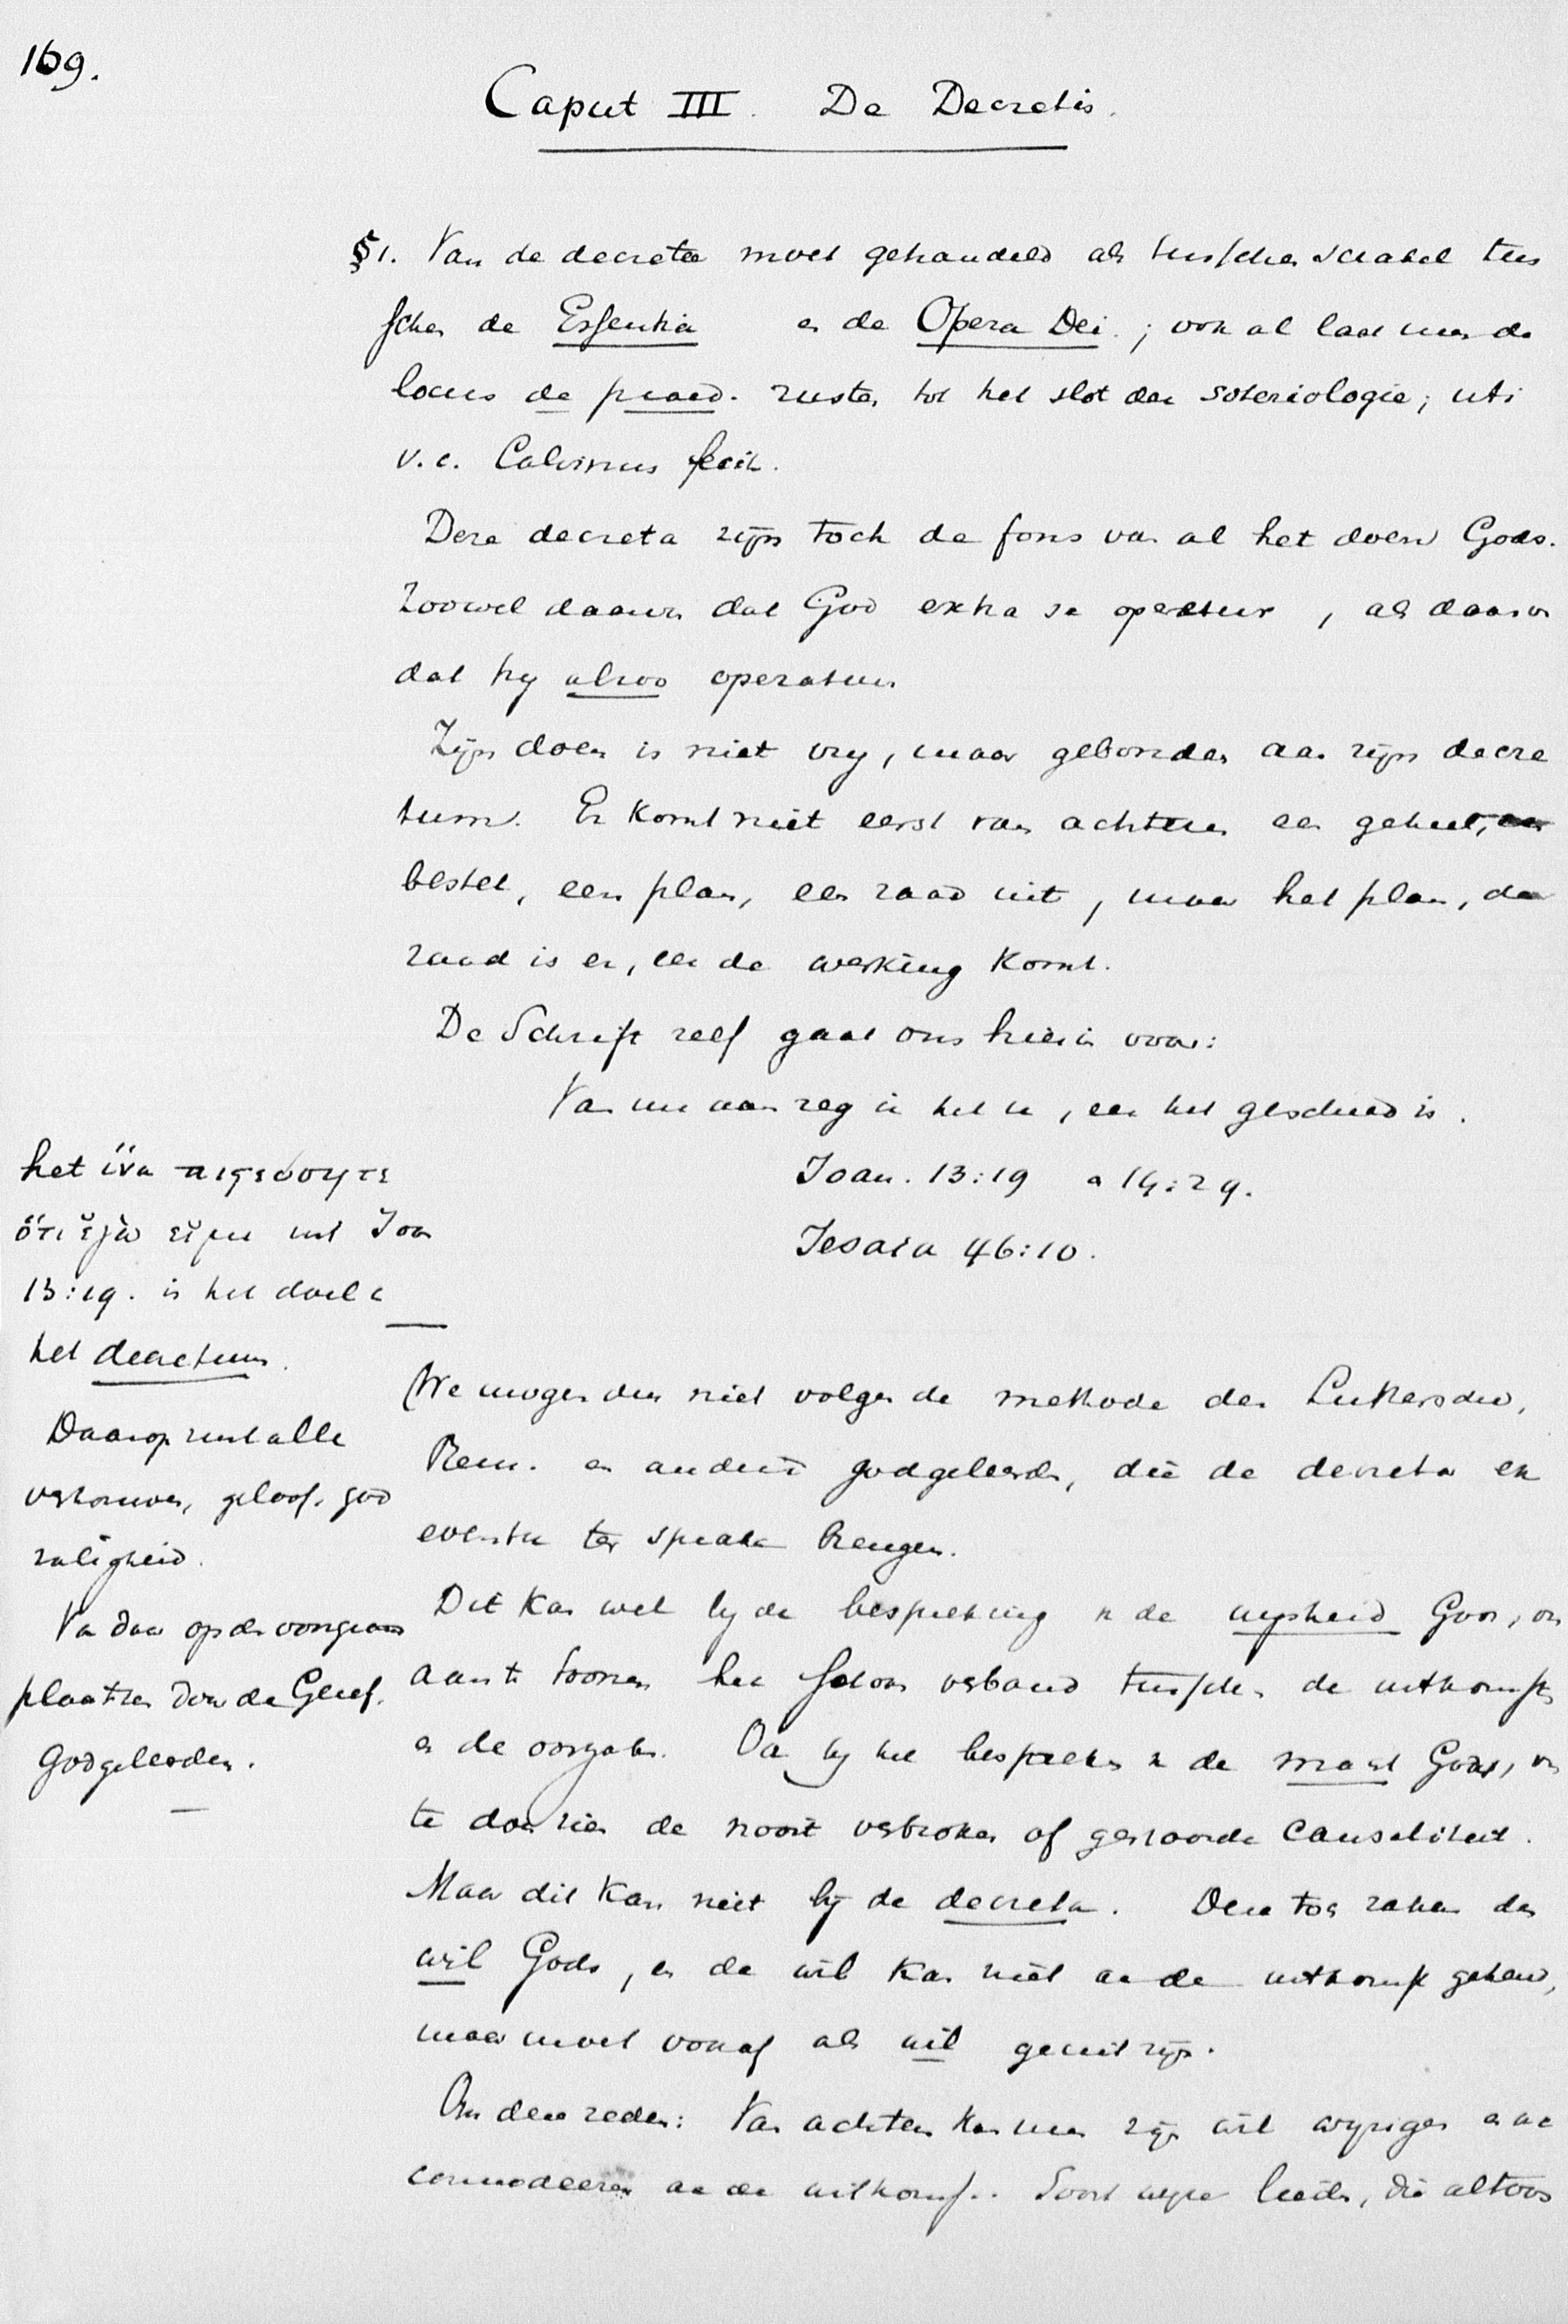 169.
Caput III. De Decretis.
§1. Van de decreta moet gehandeld als tusschenschakel tus
schen de Essentia en de Opera Dei; ook al laat men de
locus de praed. rusten tot het slot der soteriologie; uti
v.c. Calvinus fecit.
Deze decreta zijn toch de fons van al het doen Gods.
Zoowel daarin dat God extra se operatur, als daarin
dat hij alzoo operatur
Zijn doen is niet vrij, maar gebonden aan zijn decre
tum. Er komt niet eerst van achteren een geheel,
bestel, een plan, een raad uit, maar het plan, de
raad is er, eer de werking komt.
De Schrift zelf gaat ons hierin voor:
Van nu aan zeg ik het u, eer het geschied is.
Joan. 13:19 en 14:29.
Jesaia 46:10.
het ἵνα πιστεύσητε
ὅτι ἐγώ εἰμι uit Joa
13:19. is het doel v
het decretum.
Daarop rust alle
vertrouwen, geloof, god
zaligheid.
Van daar op de voorgrond
plaatsen door de Geref.
Godgeleerden.
We mogen dus niet volgen de methode der Lutherschen,
Rem. en andere godgeleerden, die de decreta ex
eventu ter sprake brengen.
Dit kan wel bij de bespreking v de wijsheid Gods, om
aan te toonen het schoon verband tusschen de uitkomsten
en de oorzaken. Ook bij het bespreken v de macht Gods, om
te doen zien de nooit verbroken of gestoorde causaliteit.
Maar dit kan niet bij de decreta. Deze toch raken den
wil Gods, en de wil kan niet aan de uitkomst gekend,
maar moet vooraf als wil geuit zijn.
Om deze reden: Van achteren kan men zijn wil wijzigen en ac
commodeeren aan de uitkomst. Soort wijze lieden, die altoos